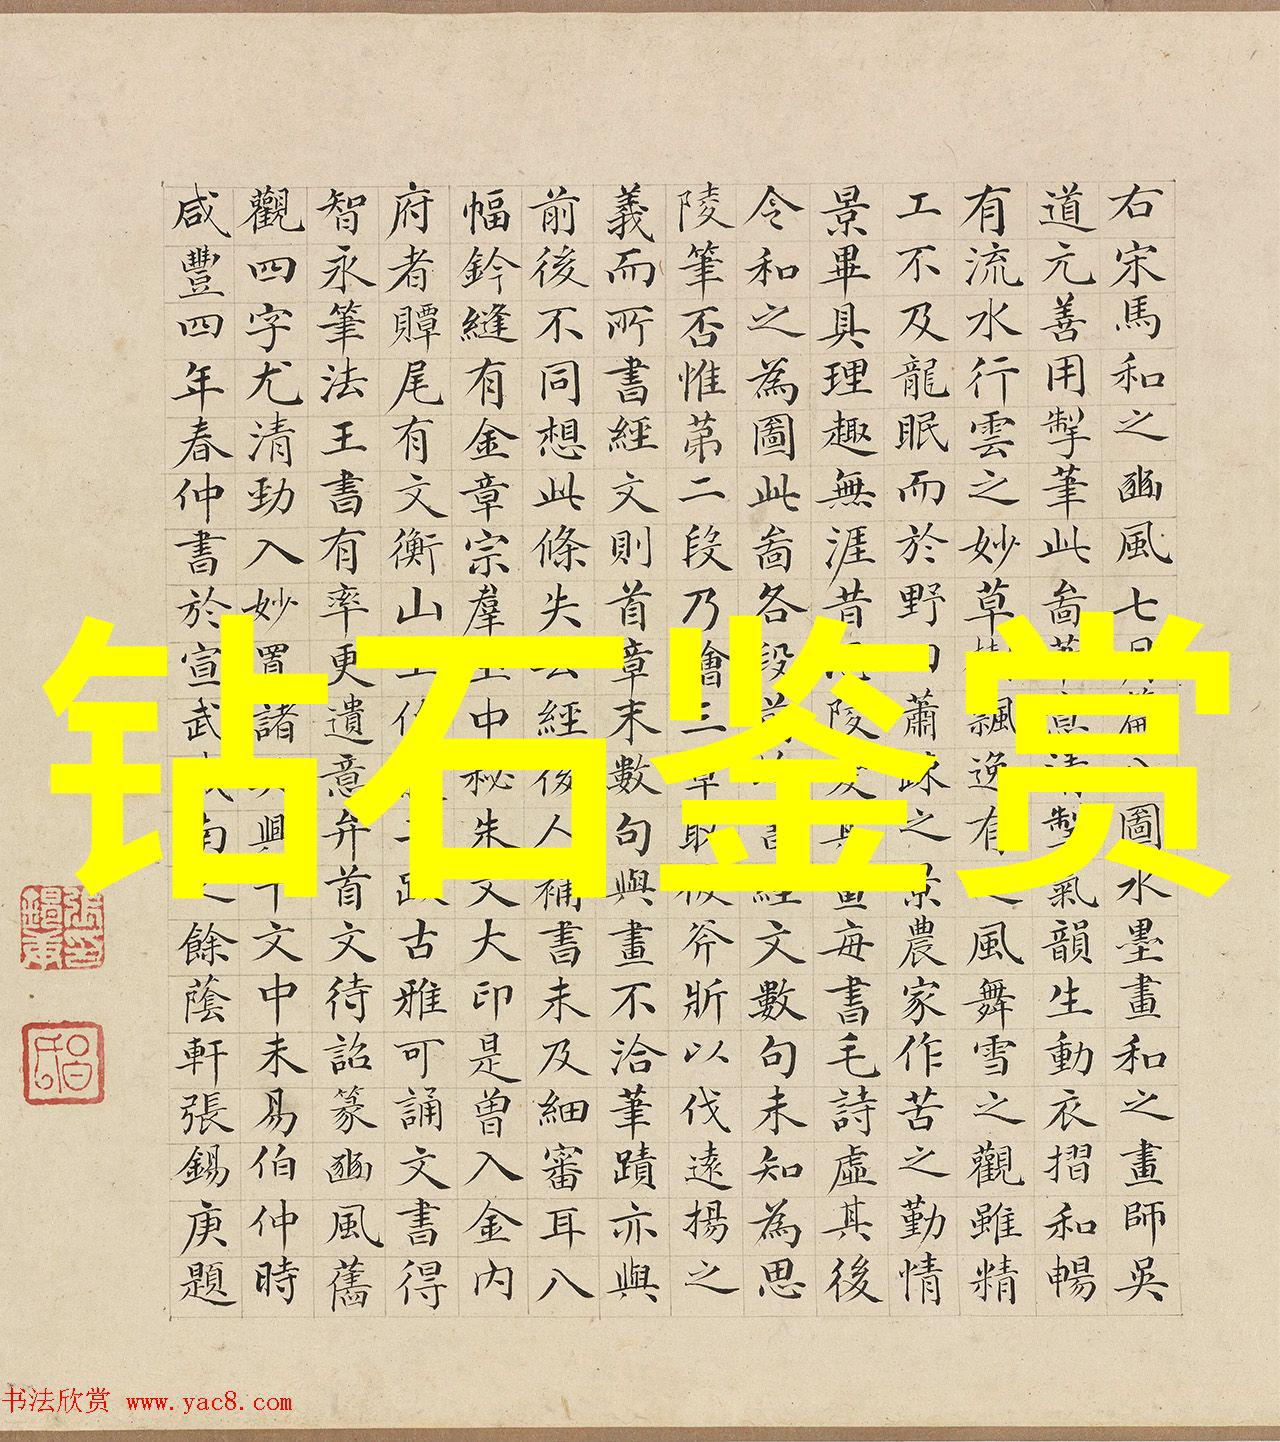 右宋馬和之豳風七月篇八圖水墨畫和之畫師吳
道元善用掣筆此啚筆意清掣氣韻生動衣摺和暢
有流水行雲之妙草樹飄逸有風舞雪之觀雖精
工不及龍眠而於野田蕭疎之景農家作苦之勤情
景畢具理趣無涯昔思陵愛其畫每書毛詩虛其後
令和之為圖此啚各段前皆書經文數句未知為思
陵筆否惟苐二段乃繪三章取彼斧斨以伐遠揚之
義而所書經文則首章末數句與畫不洽筆蹟亦與
前後不同想此條失去經後人補書未及細審耳八
幅鈐縫有金章宗羣玉中秘朱文大印是曾入金內
府者贉尾有文衡山王二跋古雅可誦文書得
智永筆法王書有率更遺意弁首文待詔篆豳風舊
觀四字尤清勁入妙置諸吳興千文中未易伯仲時
咸豐四年春仲書於宣武城南之餘蔭軒張錫庚題
張錫庚印
钻石鉴赏
书法欣赏 www.yac8.com